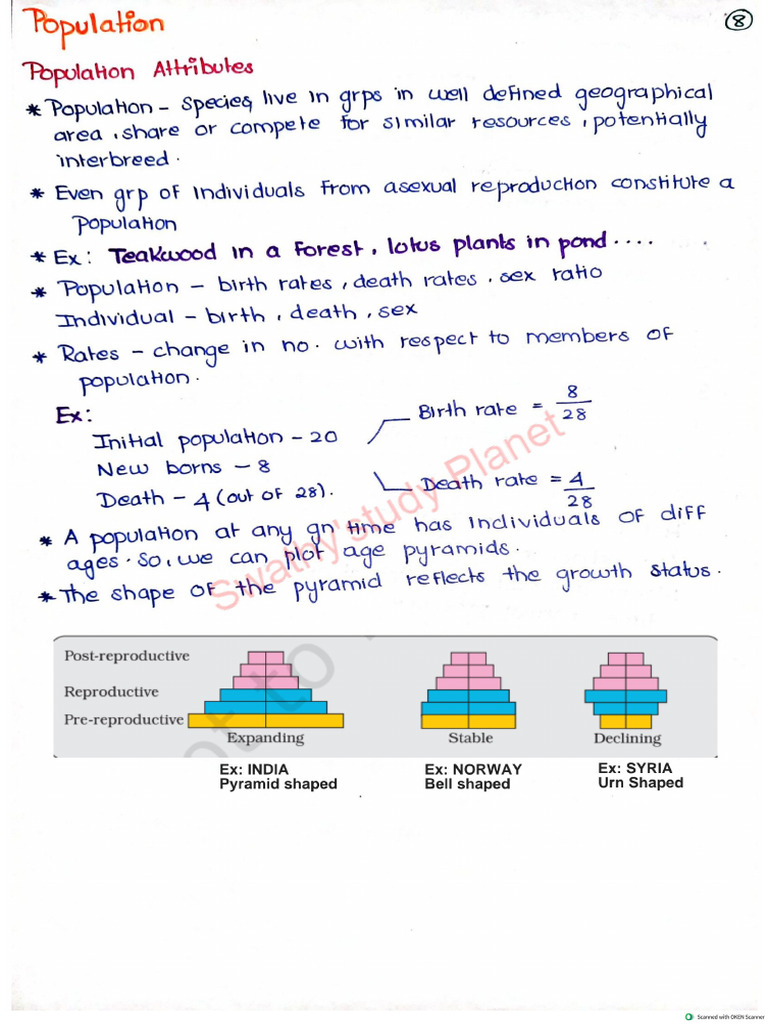 Population
8
Population Attributes
* Population - Species, live in grps in well defined geographical
area, share or compete for similar resources, potentially
interbreed.
* Even grp of individuals from asexual reproduction constitute a
population
* Ex: Teakwood in a forest, lotus plants in pond....
* Population - birth rates, death rates, sex ratio
Individual - birth, death, sex
* Rates - change in no. with respect to members of
population.
Ex:
Initial population - 20
New borns - 8
Death - 4 (out of 28).
Birth rate = 8/28
Death rate = 4/28
* A population at any gn time has individuals of diff
ages. So, we can plot age pyramids.
* The shape of the pyramid reflects the growth status.
Swathy'study Planet
Post-reproductive
Reproductive
Pre-reproductive
Expanding
Stable
Declining
Ex: INDIA
Pyramid shaped
Ex: NORWAY
Bell shaped
Ex: SYRIA
Urn Shaped
Scanned with OKEN Scanner